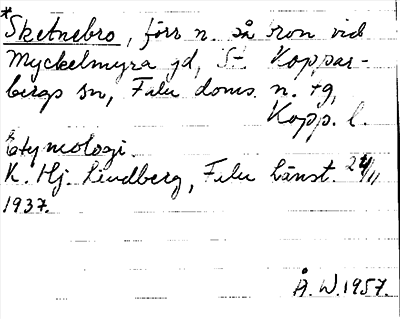 *Sketnebro, förr n. på bron vid
Myckelmyra gd, St. Koppar-
bergs sn, Falu doms. n. tg,
Kopp. l.
Etymologi.
K. Hj. Lindberg, Falu länst. 24/11
1937.
Å. W. 1957.